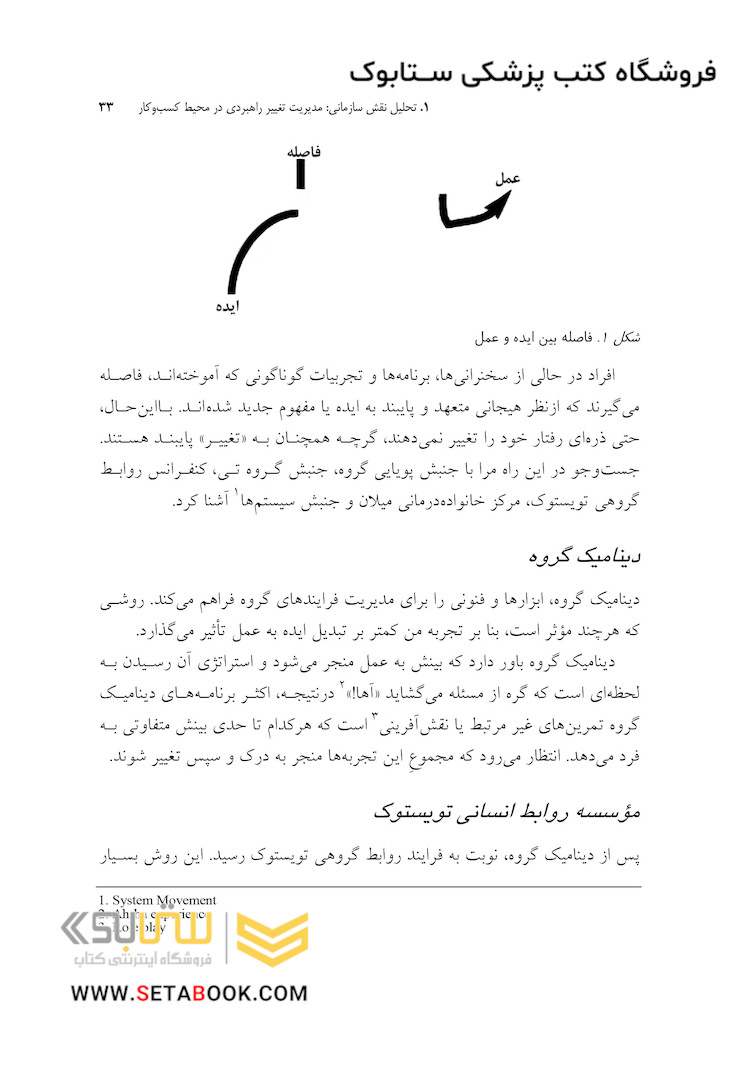 فروشگاه کتب پزشکی ستابوک
۱. تحلیل نقش سازمانی: مدیریت تغییر راهبردی در محیط کسب‌وکار ۳۳
فاصله
عمل
ایده
شکل ۱. فاصله بین ایده و عمل
افراد در حالی از سخنرانی‌ها، برنامه‌ها و تجربیات گوناگونی که آموخته‌اند، فاصله
می‌گیرند که ازنظر هیجانی متعهد و پایبند به ایده یا مفهوم جدید شده‌اند. بااین‌حال،
حتی ذره‌ای رفتار خود را تغییر نمی‌دهند، گرچه همچنان به «تغییر» پایبند هستند.
جست‌وجو در این راه مرا با جنبش پویایی گروه، جنبش گروه تی، کنفرانس روابط
گروهی تویستوک، مرکز خانواده‌درمانی میلان و جنبش سیستم‌ها۱ آشنا کرد.
دینامیک گروه
دینامیک گروه، ابزارها و فنونی را برای مدیریت فرایندهای گروه فراهم می‌کند. روشی
که هرچند مؤثر است، بنا بر تجربه من کمتر بر تبدیل ایده به عمل تأثیر می‌گذارد.
دینامیک گروه باور دارد که بینش به عمل منجر می‌شود و استراتژی آن رسیدن به
لحظه‌ای است که گره از مسئله می‌گشاید «آها!»۲ درنتیجه، اکثر برنامه‌های دینامیک
گروه تمرین‌های غیر مرتبط یا نقش‌آفرینی۳ است که هرکدام تا حدی بینش متفاوتی به
فرد می‌دهد. انتظار می‌رود که مجموعِ این تجربه‌ها منجر به درک و سپس تغییر شوند.
مؤسسه روابط انسانی تویستوک
پس از دینامیک گروه، نوبت به فرایند روابط گروهی تویستوک رسید. این روش بسیار
1. System Movement
2. Ah ha experience
3. Role play
ستابوک
فروشگاه اینترنتی کتاب
WWW.SETABOOK.COM